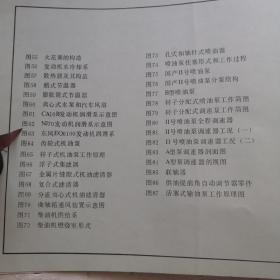 图55 火花塞的构造
图56 发动机水冷却系
图57 散热器及其构造
图58 蜡式节温器
图59 膨胀筒式节温器
图60 离心式水泵和汽车风扇
图61 CA10B发动机润滑系示意图
图62 N70发动机润滑系示意图
图63 东风EQ6100发动机润滑系
图64 齿轮式机油泵
图65 转子式机油泵工作原理
图66 浮子式集滤器
图67 金属片缝隙式机油滤清器
图68 复合式滤清器
图69 分流离心式机油滤清器
图70 曲轴箱通风装置示意图
图71 柴油机供给系
图72 柴油机燃烧室形式
图73 孔式和轴针式喷油器
图74 喷油泵柱塞形式和工作过程
图75 国产Ⅱ号喷油泵
图76 国产Ⅱ号喷油泵分泵结构
图77 B型喷油泵
图78 转子分配式喷油泵工作简图
图79 转子分配式喷油泵工作简图
图80 Ⅱ号喷油泵全程调速器
图81 Ⅱ号喷油泵调速器工况（一）
图82 Ⅱ号喷油泵调速器工况（二）
图83 A型泵调速器剖面图
图84 A型泵调速器剖视图
图85 联轴器
图86 供油提前角自动调节器零件
图87 活塞式输油泵工作原理图